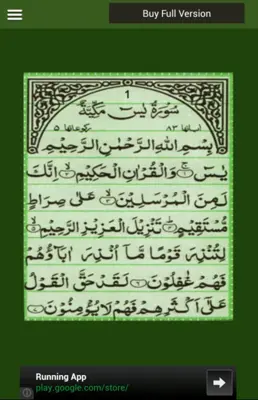 Buy Full Version
1
سُورَةُ يٰسٓ مَكِّيَّةٌ
اٰیاتها ٨٣ رکوعاتها ٥
بِسْمِ اللهِ الرَّحْمٰنِ الرَّحِيْمِ
يٰسٓ ۝١ وَالْقُرْاٰنِ الْحَكِيْمِ ۝٢ اِنَّكَ
لَمِنَ الْمُرْسَلِيْنَ ۝٣ عَلٰى صِرَاطٍ
مُّسْتَقِيْمٍ ۝٤ تَنْزِيْلَ الْعَزِيْزِ الرَّحِيْمِ ۝٥
لِتُنْذِرَ قَوْمًا مَّاۤ اُنْذِرَ اٰبَآؤُهُمْ
فَهُمْ غٰفِلُوْنَ ۝٦ لَقَدْ حَقَّ الْقَوْلُ
عَلٰۤى اَكْثَرِهِمْ فَهُمْ لَا يُؤْمِنُوْنَ ۝٧
Running App
play.google.com/store/